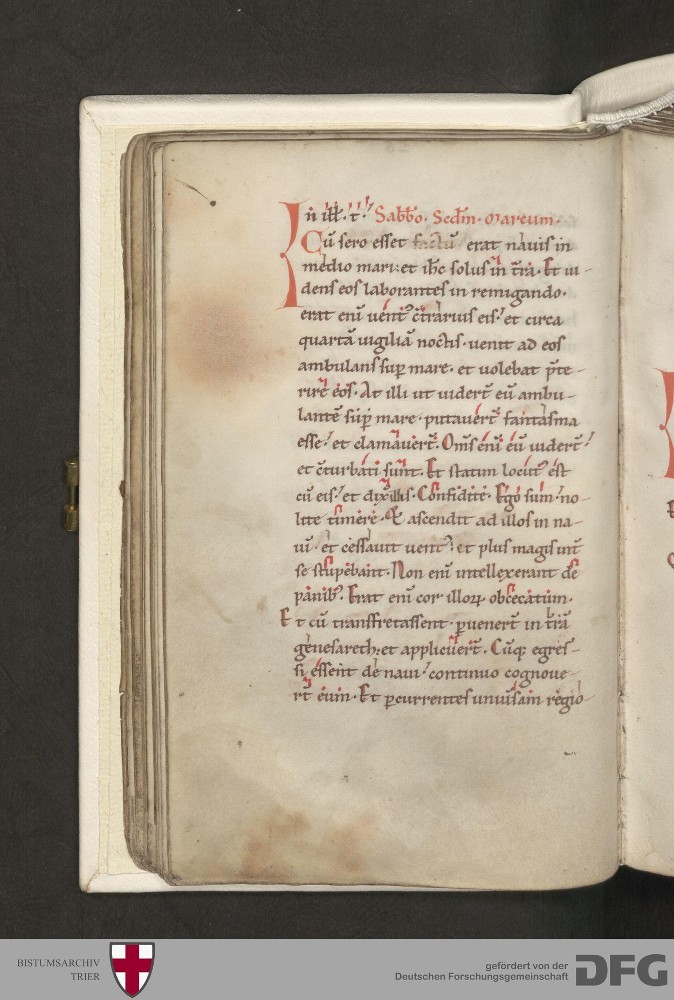 In ill̅. t̅. Sabb̅o. Secd̅m. Marcum.
Cū sero esset factū erat nauis in
medio mari: et ih̅c solus in t̅ra. Et ui-
dens eos laborantes in remigando.
erat enī uentꝰ c̅trarius eis: et circa
quartā uigiliā noctis. uenit ad eos
ambulans sup̱ mare. et uolebat p̅te-
rire eos. At illi ut uidert̅ eū ambu-
lantē sup̱ mare. putauert̅ fantasma
esse: et clamauert̅. Om̅s enī eū uidert̅:
et c̅turbati sunt. Et statim locutꝰ est
cū eis: et dix̅ illis. Confidite. Ego sum. no-
lite timere. Et ascendit ad illos in na-
ui. et cessauit uentꝰ: et plus magis int̅
se stupebant. Non enī intellexerant de
panibꝰ. Erat enī cor illoꝝ obcecatum.
Et cū transfretassent. ꝑuenert̅ in t̅rā
genesareth: et applicuert̅. Cūq; egres-
si essent de naui: continuo cognoue-
rt̅ eum. Et ꝑcurrentes uniuersam regio-
BISTUMSARCHIV
TRIER
gefördert von der
Deutschen Forschungsgemeinschaft
DFG